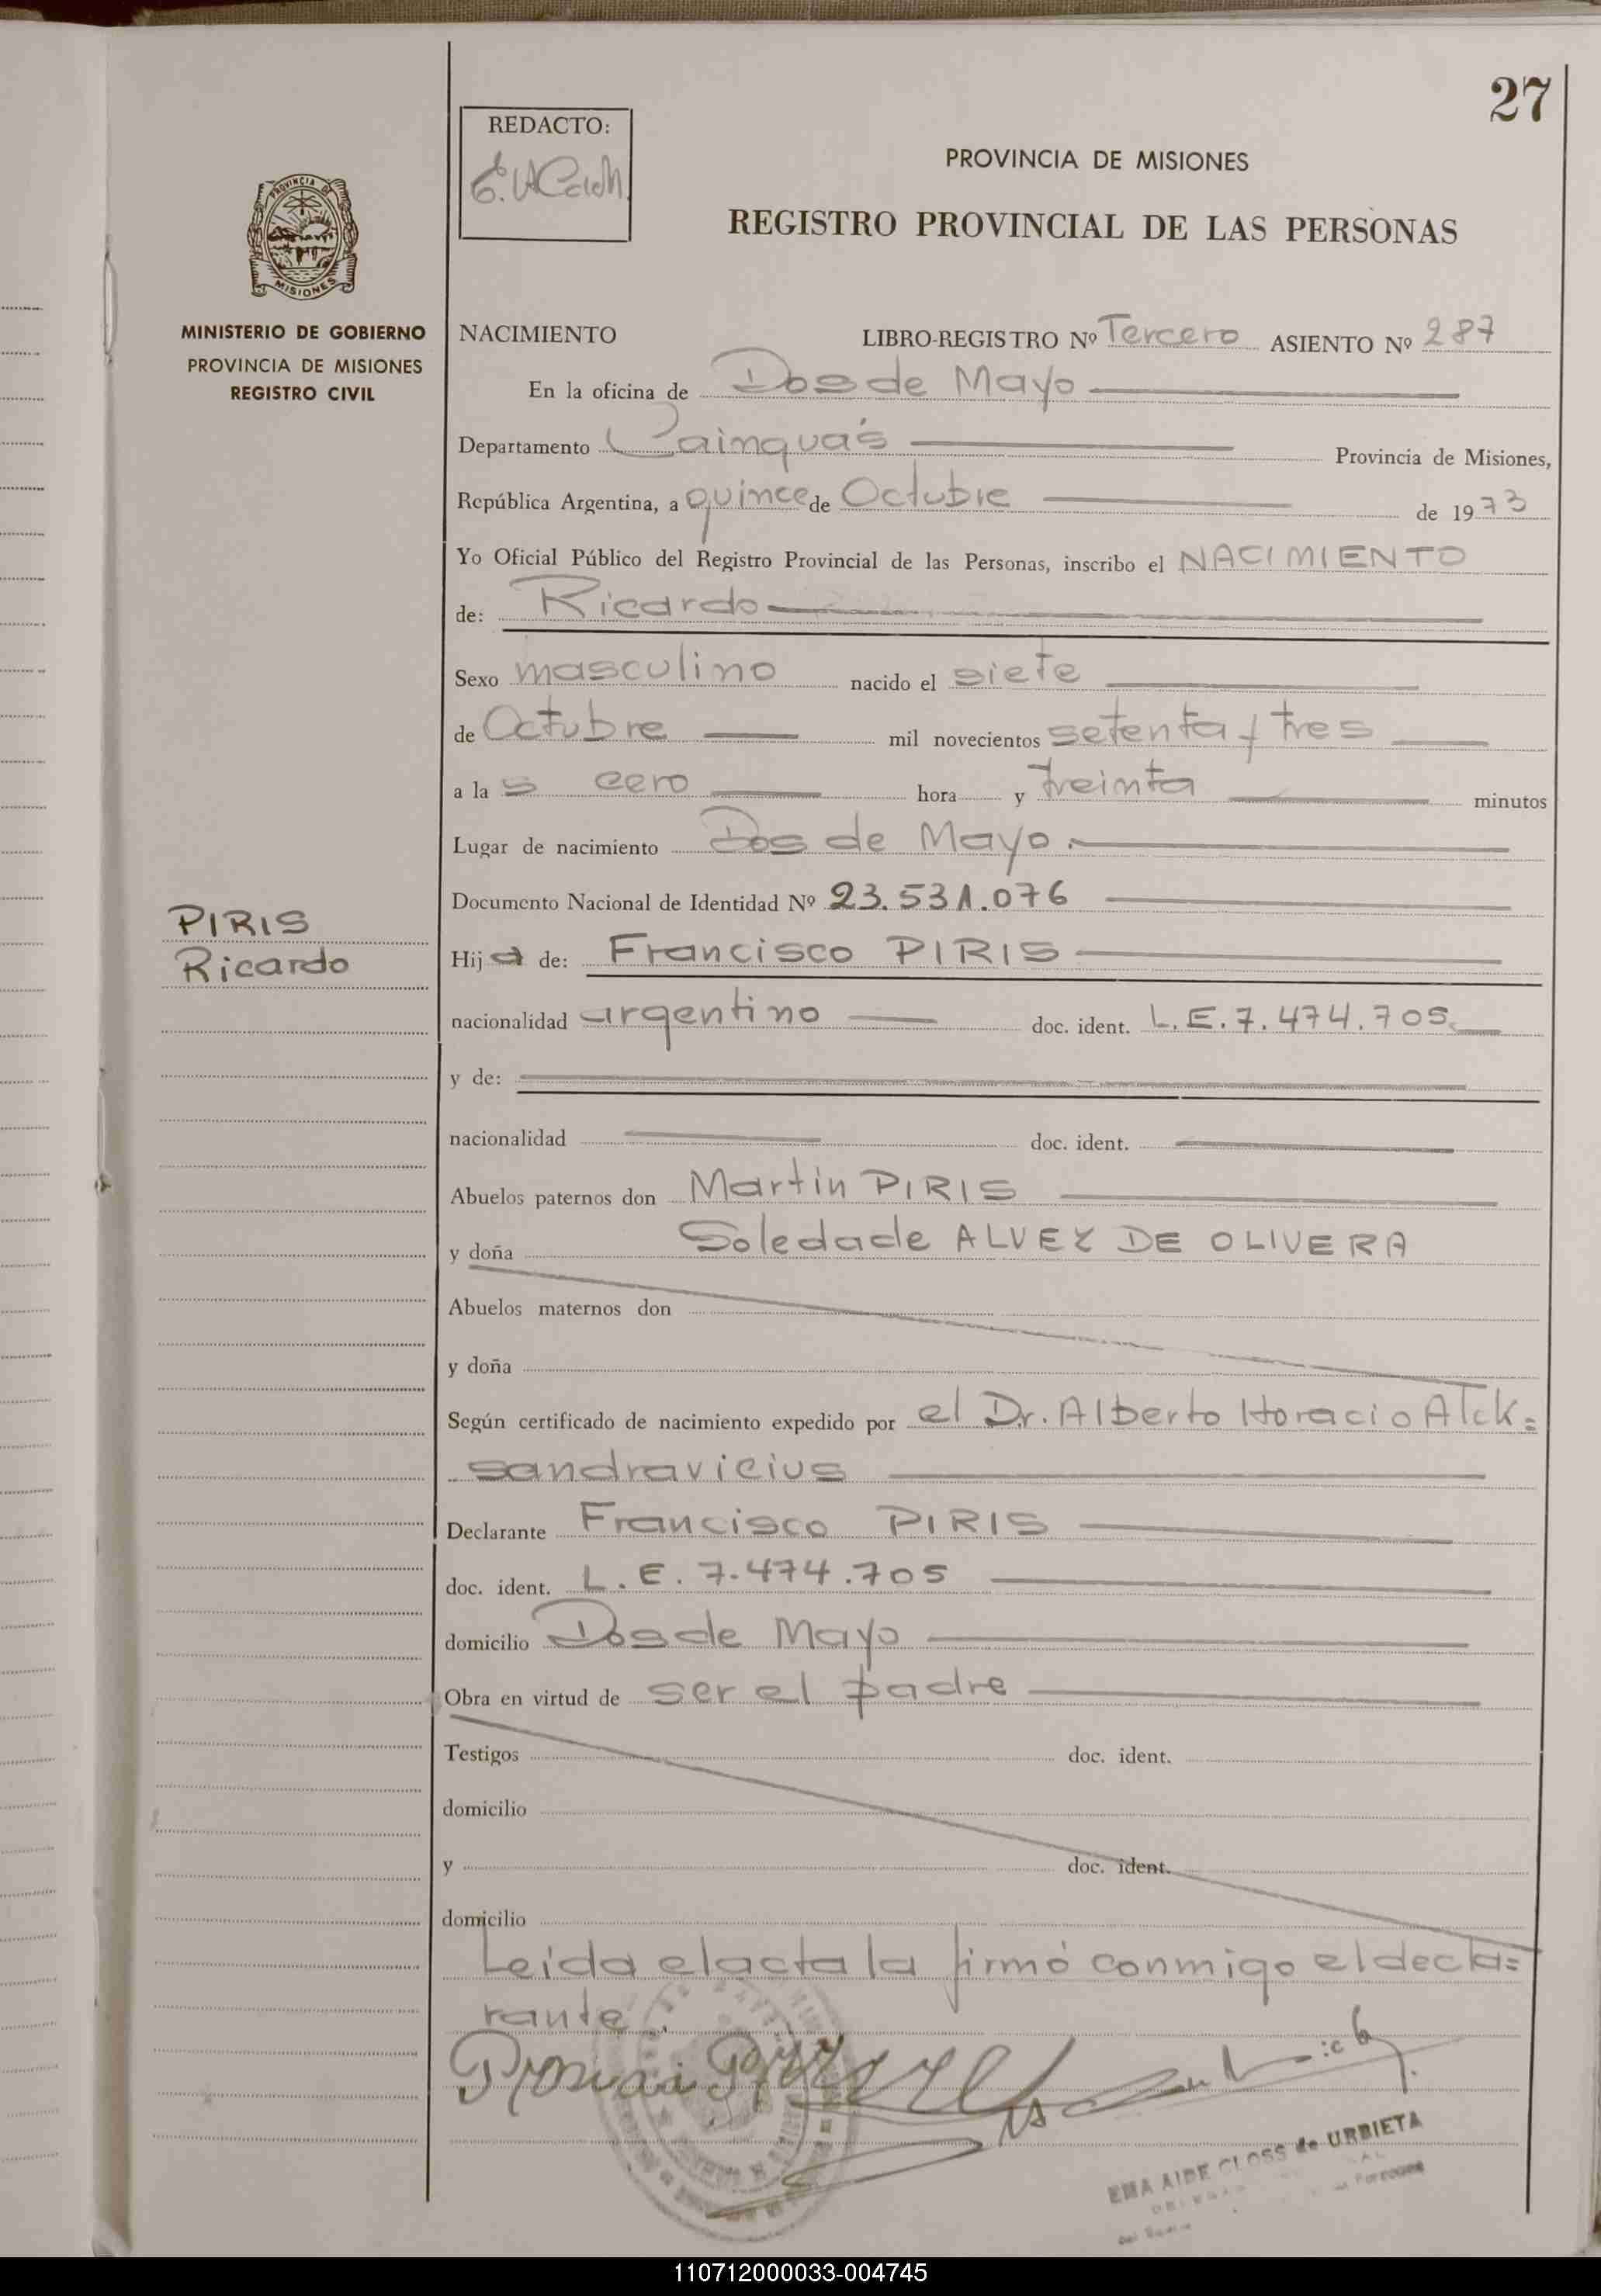 27
REDACTO:
PROVINCIA DE MISIONES
REGISTRO PROVINCIAL DE LAS PERSONAS
PROVINCIA DE
MISIONES
MINISTERIO DE GOBIERNO
PROVINCIA DE MISIONES
REGISTRO CIVIL
NACIMIENTO LIBRO-REGISTRO Nº Tercero ASIENTO Nº 287
En la oficina de Dos de Mayo
Departamento Cainguás Provincia de Misiones,
República Argentina, a quince de Octubre de 1973
Yo Oficial Público del Registro Provincial de las Personas, inscribo el NACIMIENTO
de: Ricardo
Sexo masculino nacido el siete
de Octubre mil novecientos setenta y tres
a la s cero hora y treinta minutos
Lugar de nacimiento Dos de Mayo.
Documento Nacional de Identidad Nº 23.531.076
PIRIS
Ricardo
Hij o de: Francisco PIRIS
nacionalidad argentino doc. ident. L.E.7.474.705.
y de:
nacionalidad doc. ident.
Abuelos paternos don Martin PIRIS
y doña Soledade ALVEZ DE OLIVERA
Abuelos maternos don
y doña
Según certificado de nacimiento expedido por el Dr. Alberto Horacio Alek=
sandravicius
Declarante Francisco PIRIS
doc. ident. L.E. 7.474.705
domicilio Dos de Mayo
Obra en virtud de ser el padre
Testigos doc. ident.
domicilio
y doc. ident.
domicilio
Leida el acta la firmó conmigo el decla=
rante.
EMA AIDE CLOSS de URBIETA
110712000033-004745